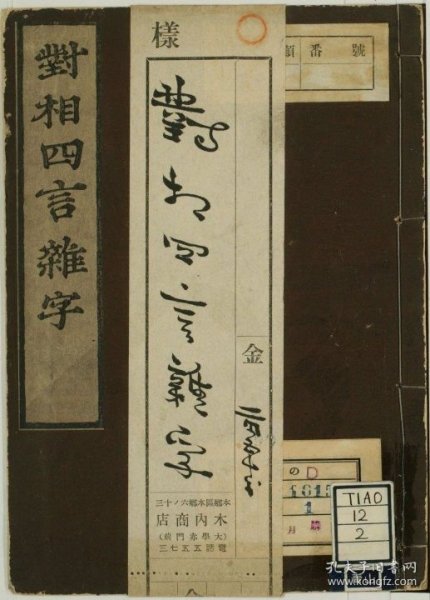 對相四言雜字
樣
對相四言雜字
金
三十ノ六郷本區郷本
店商內木
(前門赤學大)
三七五五話電
類番號
のD
1
月
TIAO
12
2
孔夫子旧书网
www.kongfz.com